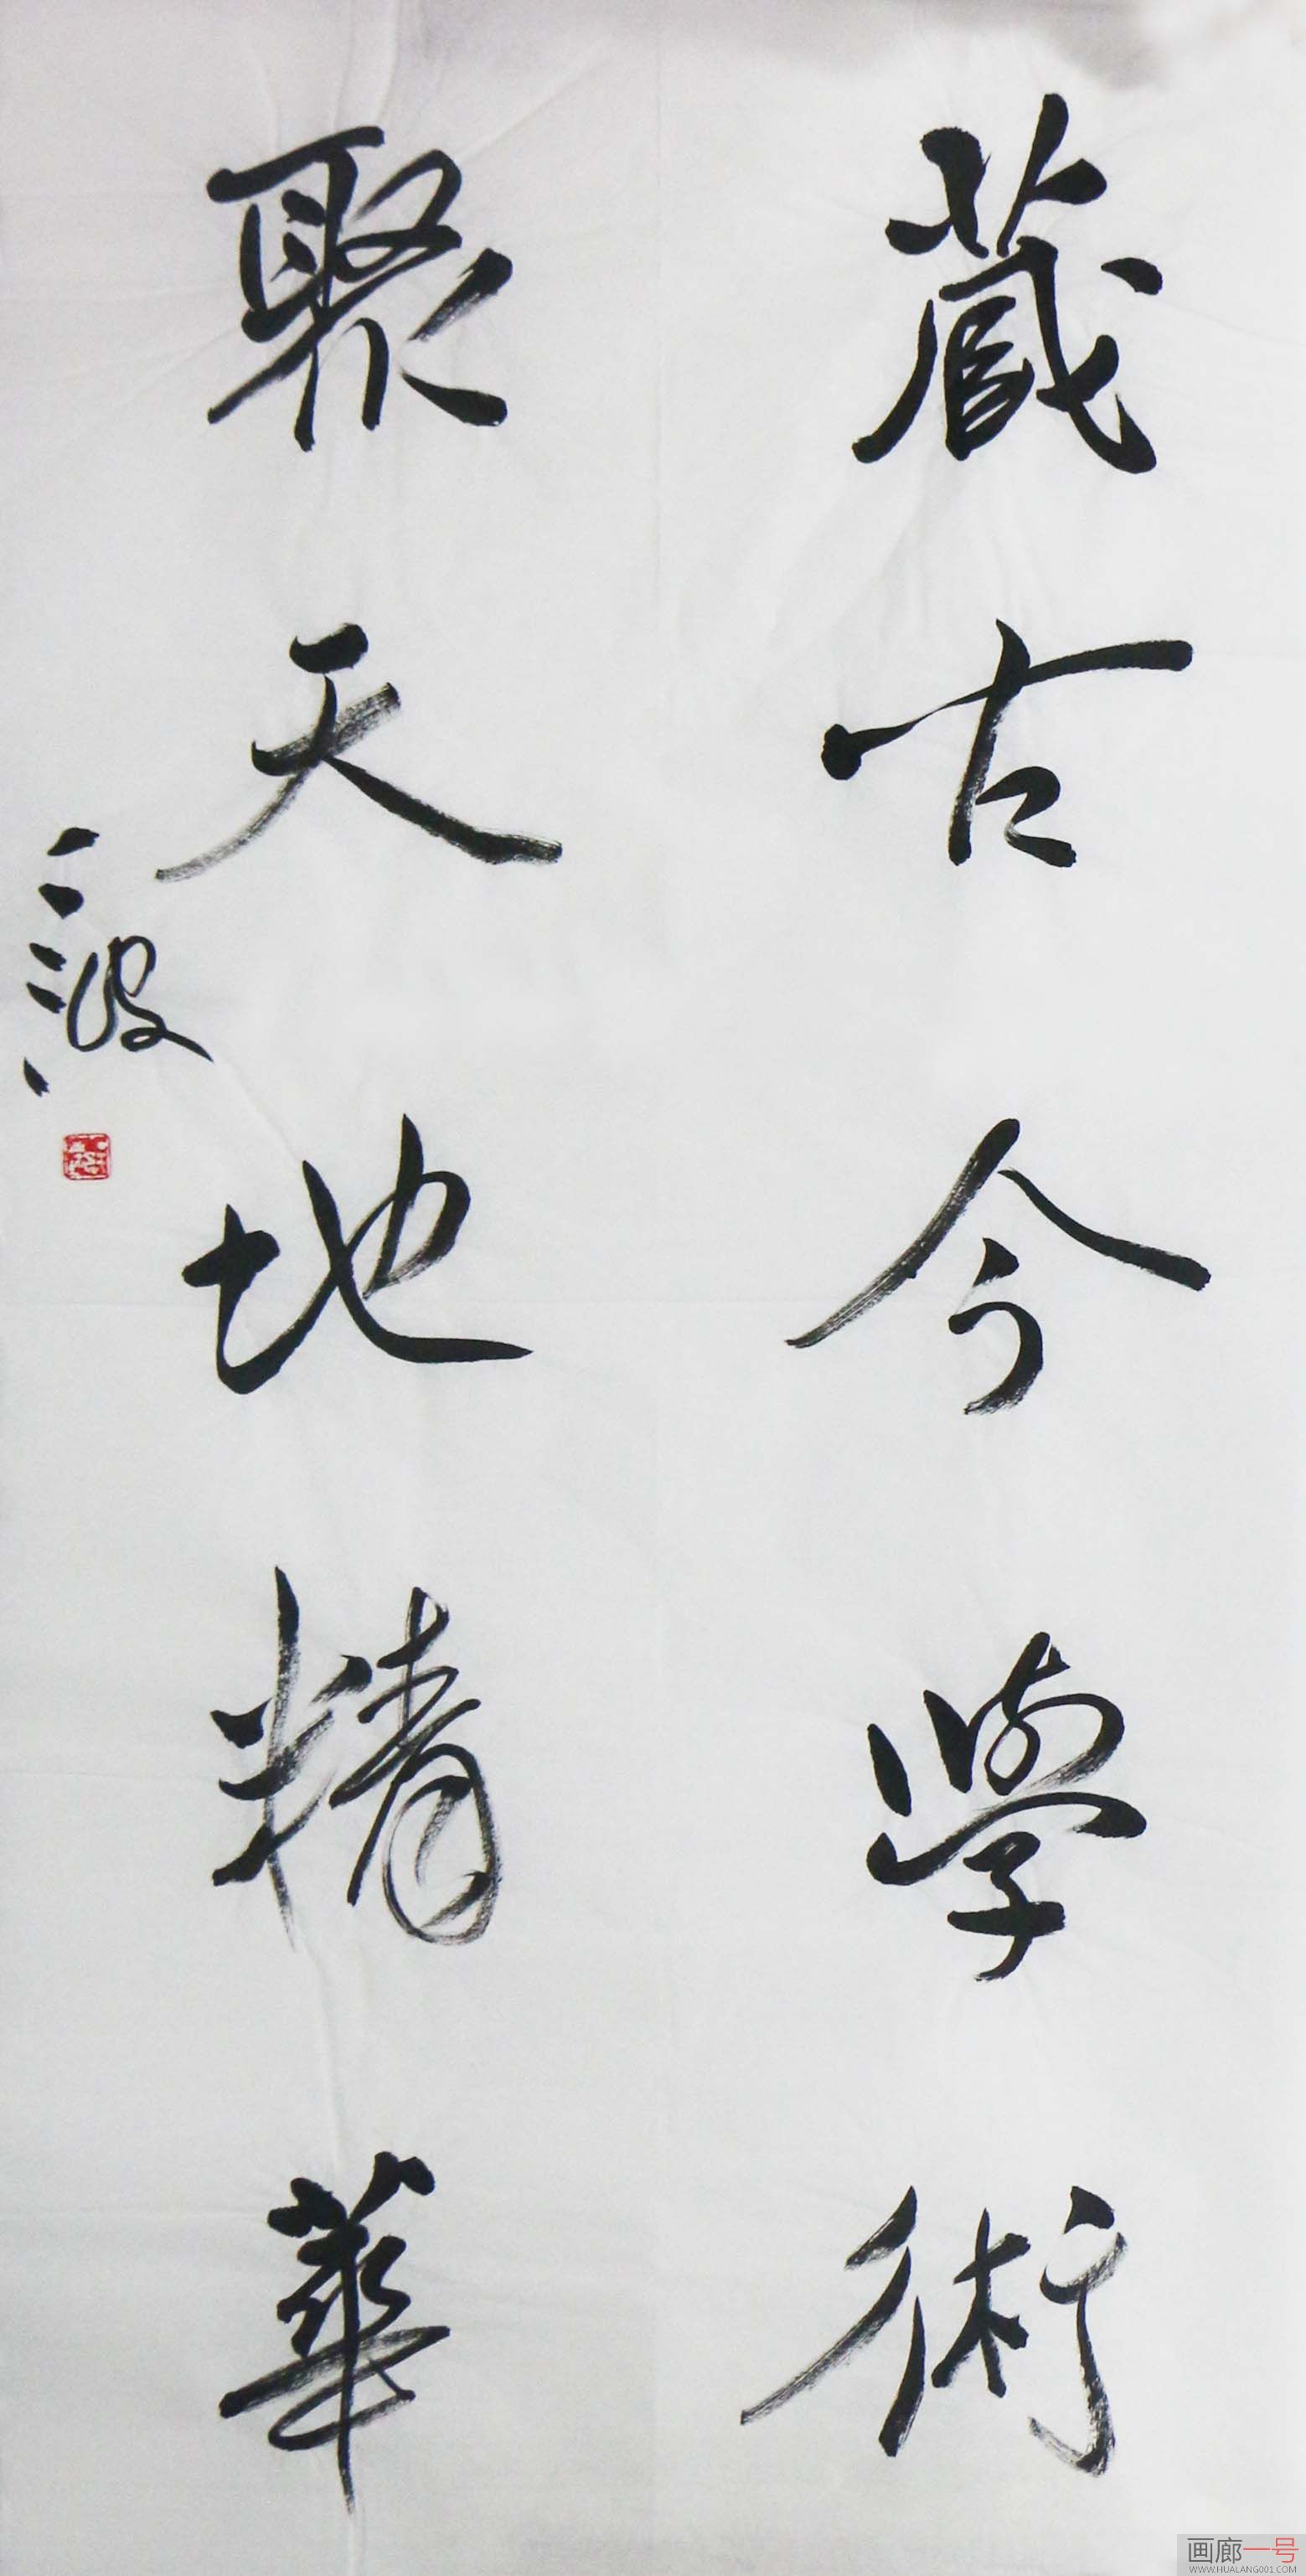 藏古今學術
聚天地精華
波
画廊一号
WWW.HUALANG001.COM